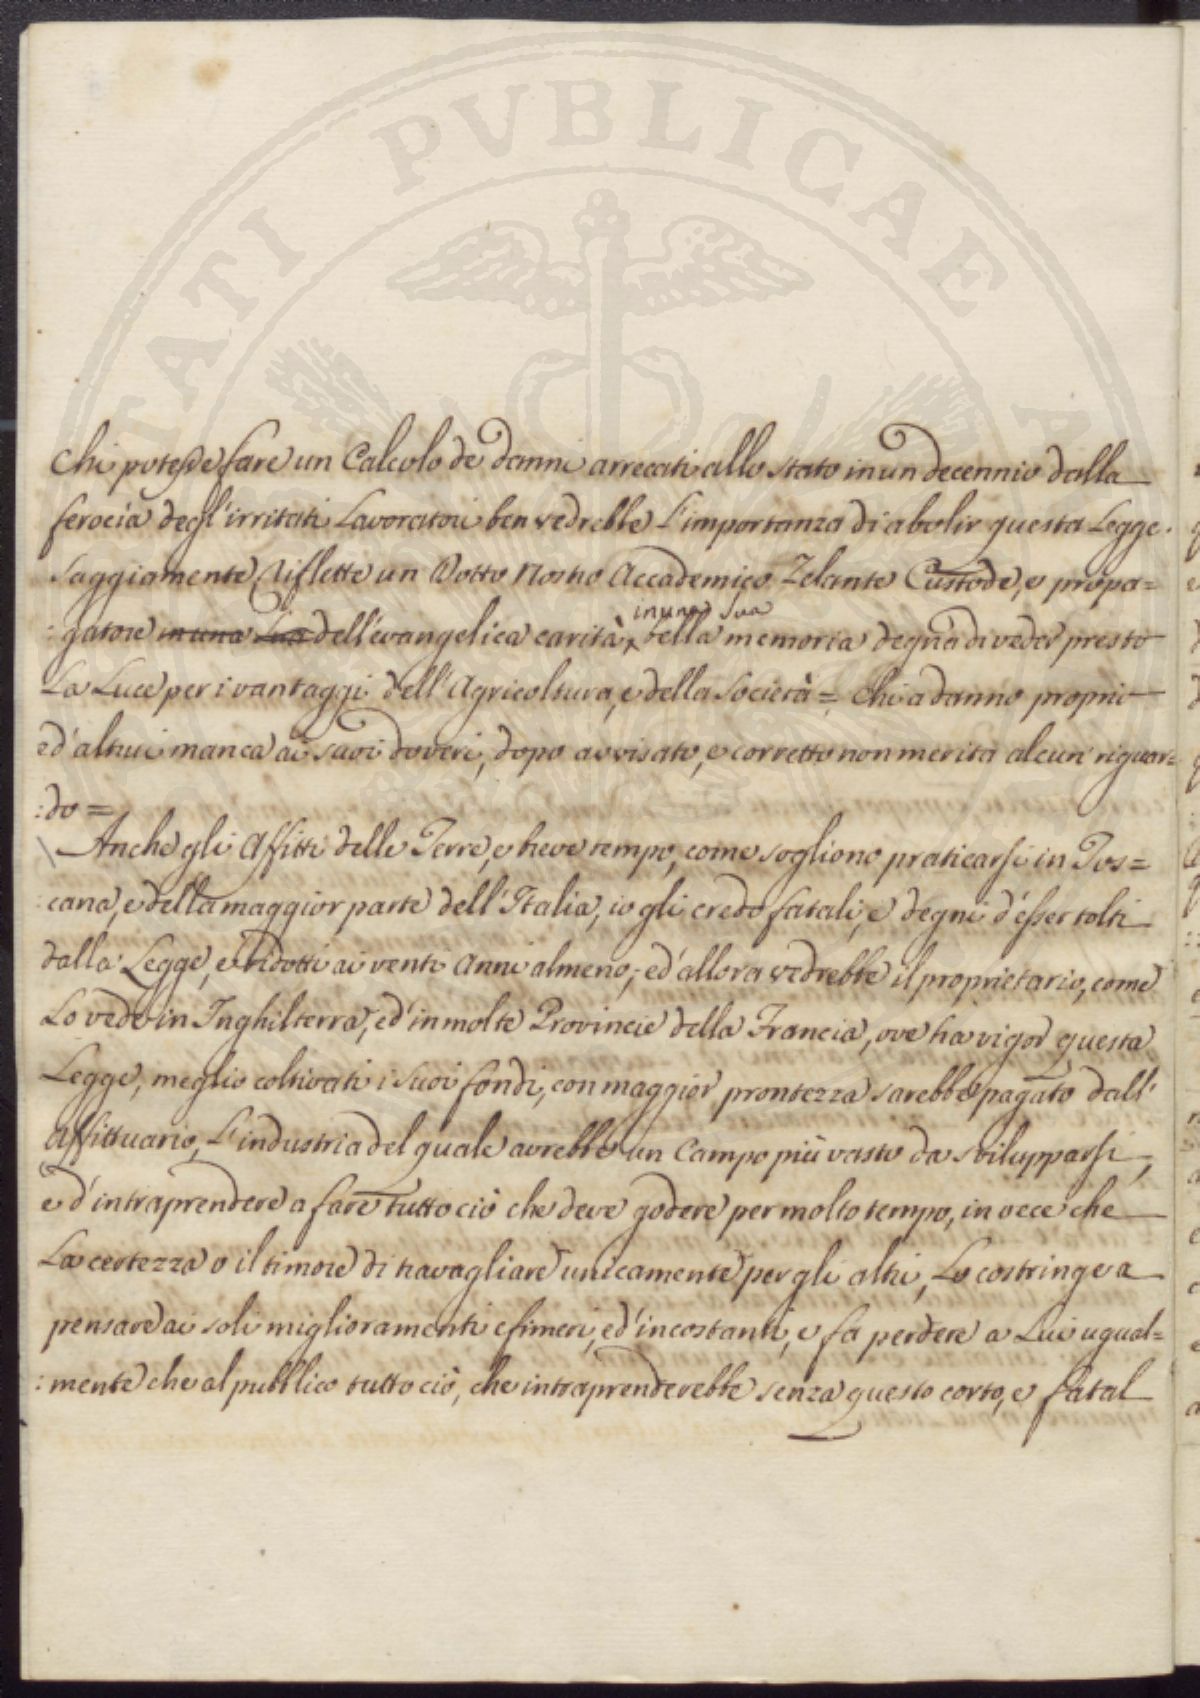 PVBLICAE
Chi potesse fare un Calcolo de danni arrecati allo stato in un decennio dalla
ferocia degl'irritati Lavoratori ben vedrebbe L'importanza di abolir questa Legge.
Saggiamente Riflette un Dotto Nostro Accademico, Zelante Custode, e propa=
in una sua
:gatore in una sua dell'evangelica carità, bella memoria degna di veder presto
La Luce per i vantaggi dell'Agricoltura, e della Società = Chi a danno proprio
ed'altrui manca ai suoi doveri, dopo avvisato, e corretto non merita alcun riguar=
:do =
Anche gli Affitti delle Terre, e breve tempo, come sogliono praticarsi in Tos=
:cana, e della maggior parte dell'Italia, io gli credo fatali, e degni d'esser tolti
dalla Legge, e ridotti ai venti Anni almeno; ed'allora vedrebbe il proprietario, come
Lo vede in Inghilterra, ed'in molte Provincie della Francia, ove ha vigor questa
Legge, meglio coltivati i suoi fondi, con maggior prontezza sarebbe pagato dall'
Affittuario, L'industria del quale avrebbe un Campo più vasto da svilupparsi,
e d'intraprendere a fare tutto ciò che deve godere per molto tempo, in vece che
La certezza o il timore di travagliare unicamente per gli altri, Lo costringe a
pensare ai soli miglioramenti efimeri, ed'incostanti, e fa perdere a Lui ugual=
:mente che al pubblico tutto ciò, che intraprenderebbe senza questo corto, e fatal